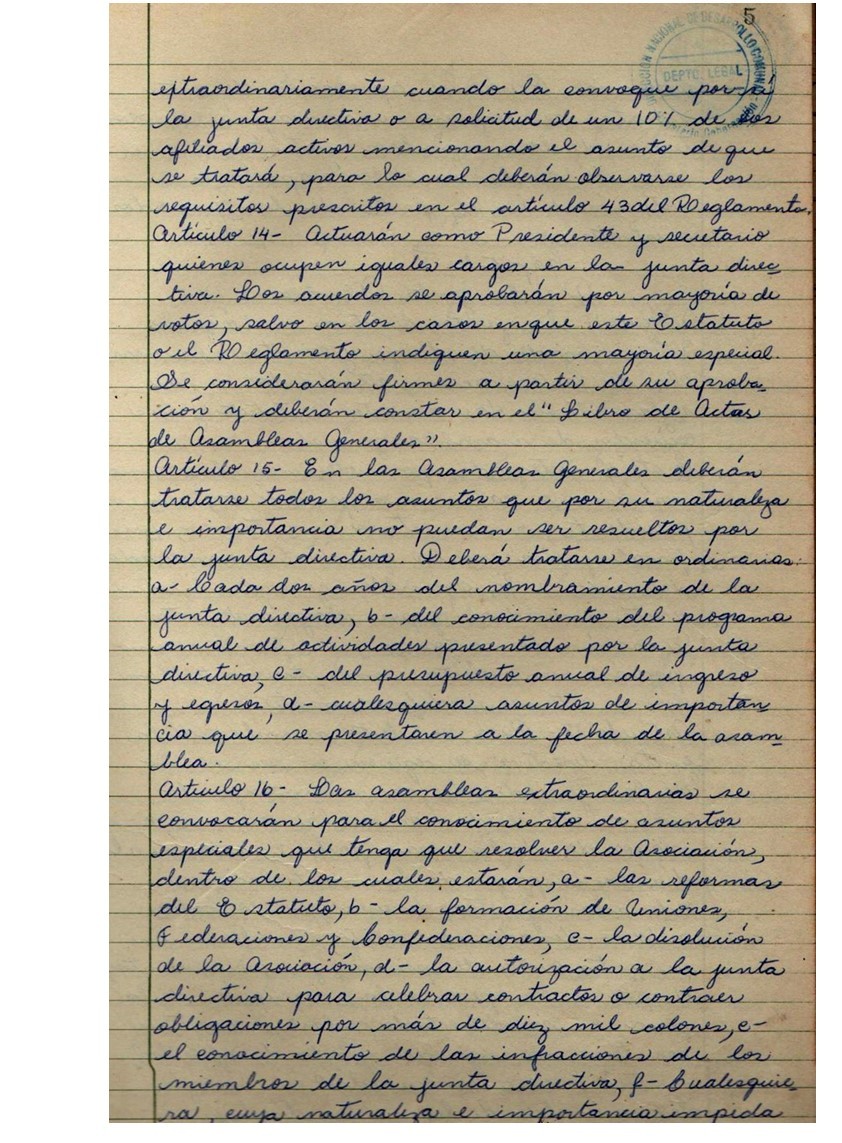 5
DIRECCION NACIONAL DE DESARROLLO COMUNAL
DEPTO. LEGAL
extraordinariamente cuando la convoque por sí
la junta directiva o a solicitud de un 10% de los
afiliados activos mencionando el asunto de que
se tratará, para lo cual deberán observarse los
requisitos prescritos en el artículo 43 del Reglamento.
Artículo 14- Actuarán como Presidente y secretario
quienes ocupen iguales cargos en la junta direc
tiva. Los acuerdos se aprobarán por mayoría de
votos, salvo en los casos en que este Estatuto
o el Reglamento indiquen una mayoría especial.
Se considerarán firmes a partir de su aproba-
ción y deberán constar en el "Libro de Actas
de Asambleas Generales".
Artículo 15- En las Asambleas Generales deberán
tratarse todos los asuntos que por su naturaleza
e importancia no puedan ser resueltos por
la junta directiva. Deberá tratarse en ordinarias:
a- Cada dos años del nombramiento de la
junta directiva, b- del conocimiento del programa
anual de actividades presentado por la junta
directiva, c- del presupuesto anual de ingreso
y egresos, d- cualesquiera asuntos de importan
cia que se presentaren a la fecha de la asam
blea.
Artículo 16- Las asambleas extraordinarias se
convocarán para el conocimiento de asuntos
especiales que tenga que resolver la Asociación,
dentro de los cuales estarán, a- las reformas
del Estatuto, b- la formación de Uniones,
Federaciones y Confederaciones, c- la disolución
de la Asociación, d- la autorización a la junta
directiva para celebrar contractos o contraer
obligaciones por más de diez mil colones, e-
el conocimiento de las infracciones de los
miembros de la junta directiva, f- Cualesquie-
ra, cuya naturaleza e importancia impida